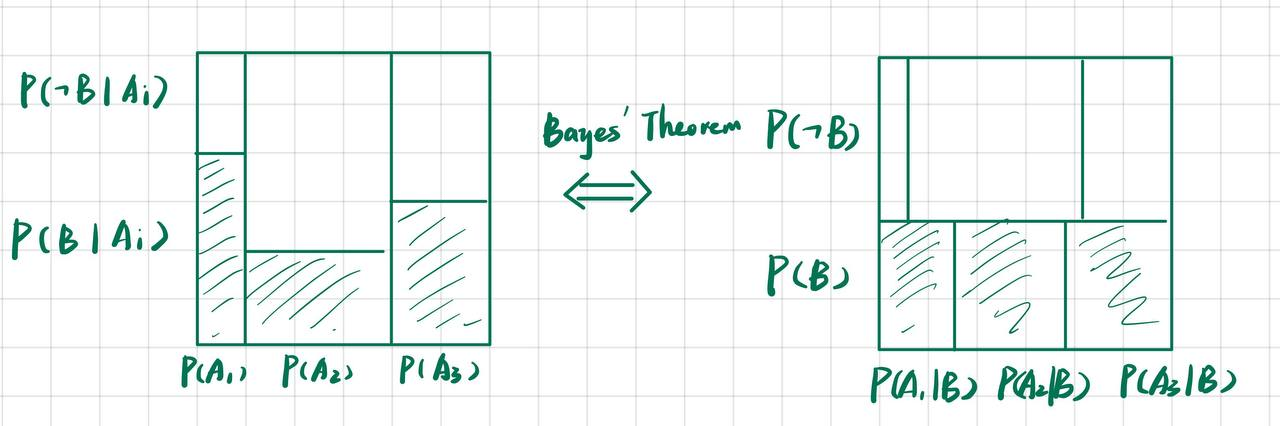 P(¬B|Ai)
P(B|Ai)
P(A₁) P(A₂) P(A₃)
Bayes' Theorem
P(¬B)
P(B)
P(A₁|B) P(A₂|B) P(A₃|B)